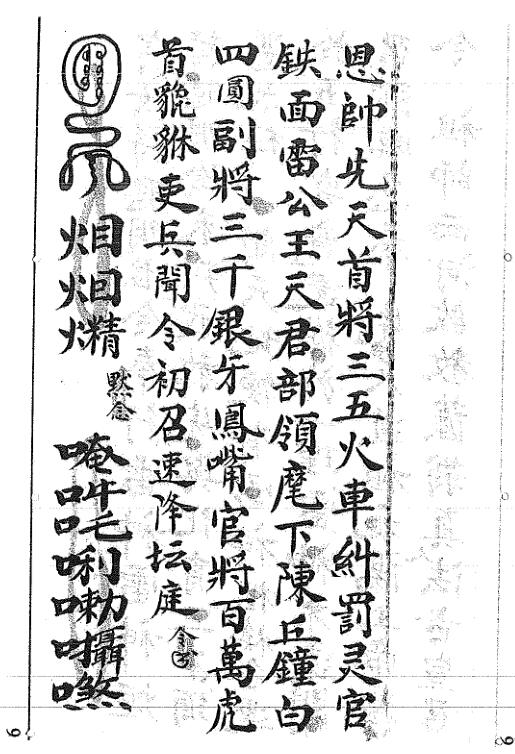 恩帥先天首将三五火車糾罰灵官
鉄面雷公王天君部領麾下陳丘鐘白
四圓副将三千銀牙鳳嘴官将百萬虎
首貔貅吏兵聞令初召速降坛庭
令
炟烠
默念
唵吽吒唎𠡠囁
9
9